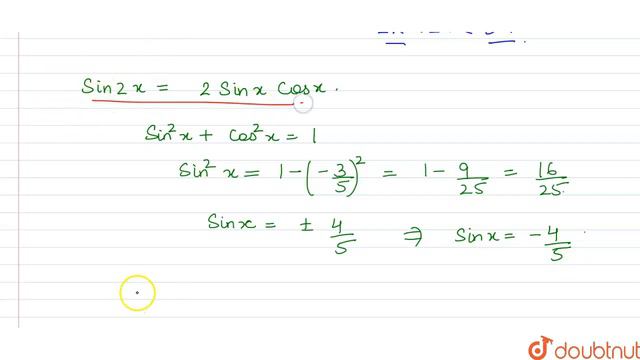 Sin2x = 2 Sinx Cosx.
Sin²x + Cos²x = 1
Sin²x = 1-(-3/5)² = 1 - 9/25 = 16/25.
Sinx = ± 4/5 ⇒ Sinx = -4/5.
doubtnut